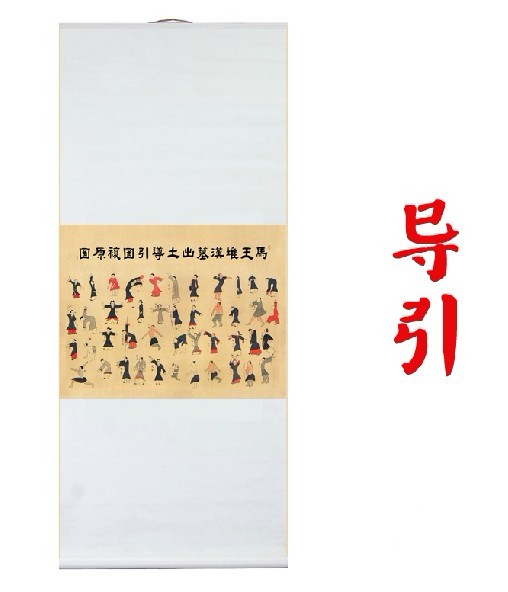 馬王堆漢墓出土導引圖複原圖
导引